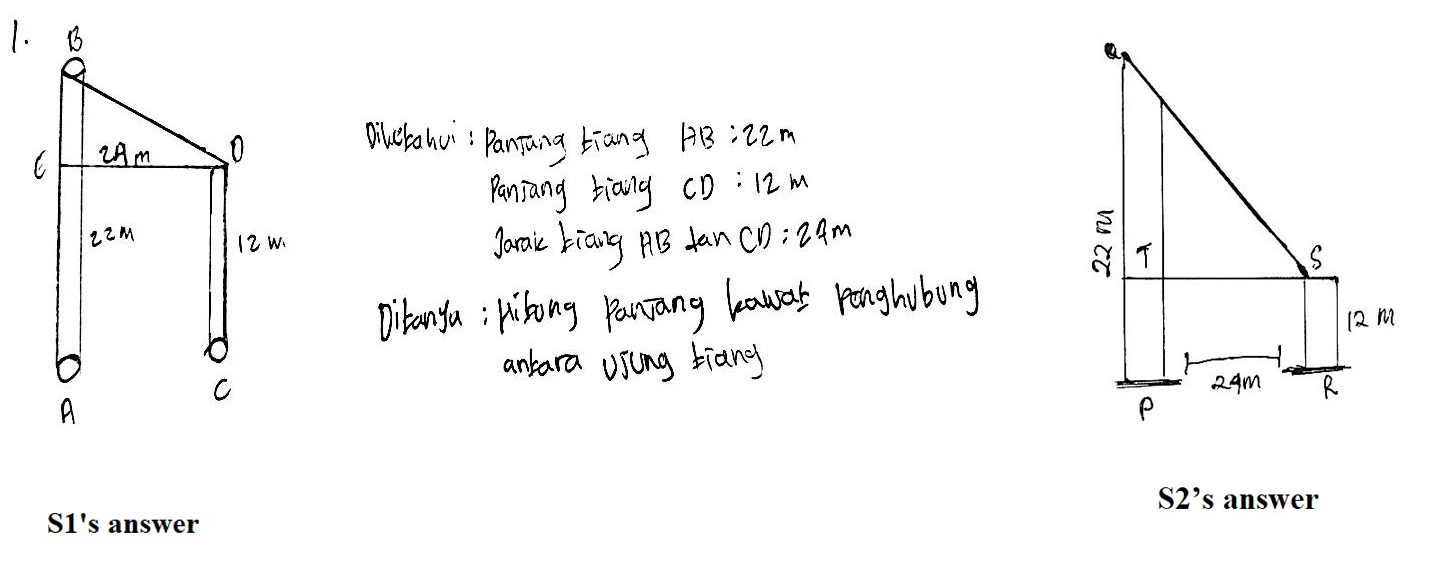 1.
B
E
24 m
D
22 m
12 m
A
C
Diketahui : Panjang tiang AB : 22 m
Panjang tiang CD : 12 m
Jarak tiang AB dan CD : 24 m
Ditanya : Hitung Panjang kawat Penghubung
antara Ujung tiang
S1's answer
Q
22 m
T
S
12 m
24m
P
R
S2’s answer